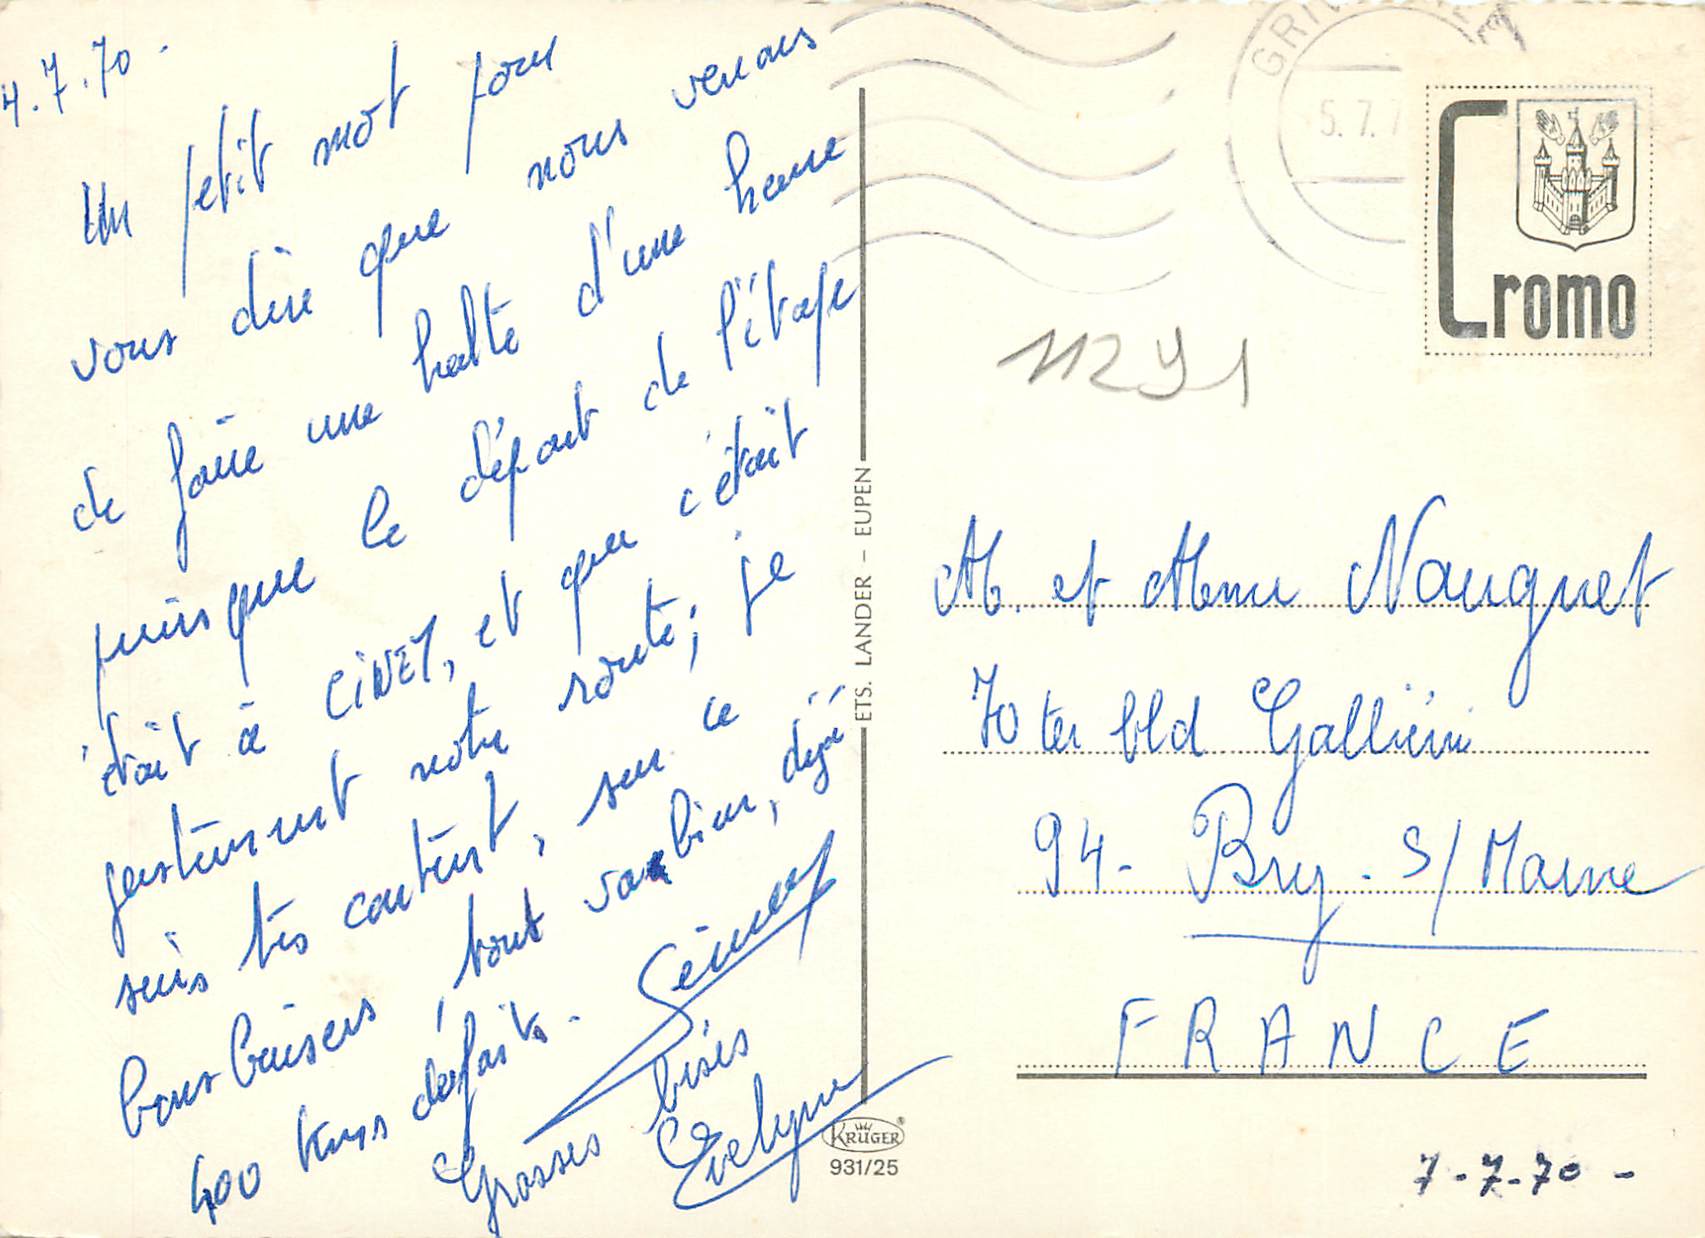 4.7.70.
Un petit mot pour
vous dire que nous venons
de faire une halte d'une heure
puisque le départ de l'étape
était à CINEY, et que c'était
justement notre route; je
suis très content, sur ce
bons baisers, tout va bien, déjà
400 kms de faits.
Grosses bises
Evelyne
ETS. LANDER – EUPEN
KRÜGER®
931/25
5.7.7
Cromo
11291
M. et Mme Nauquet
70 ter bld Galliéni
94- Bry. S/Marne
FRANCE
7-7-70-